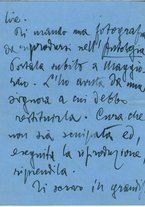 lie.
Ti mando una fotografia
da riprodursi nell'Antologia
Portala subito a Maggio
rino. L'ho avuta da una
signora a cui debbo
restituirla. Cura che
non sia sciupata ed,
eseguita la riproduzione,
riprendila.
Ti scrivo in grandi